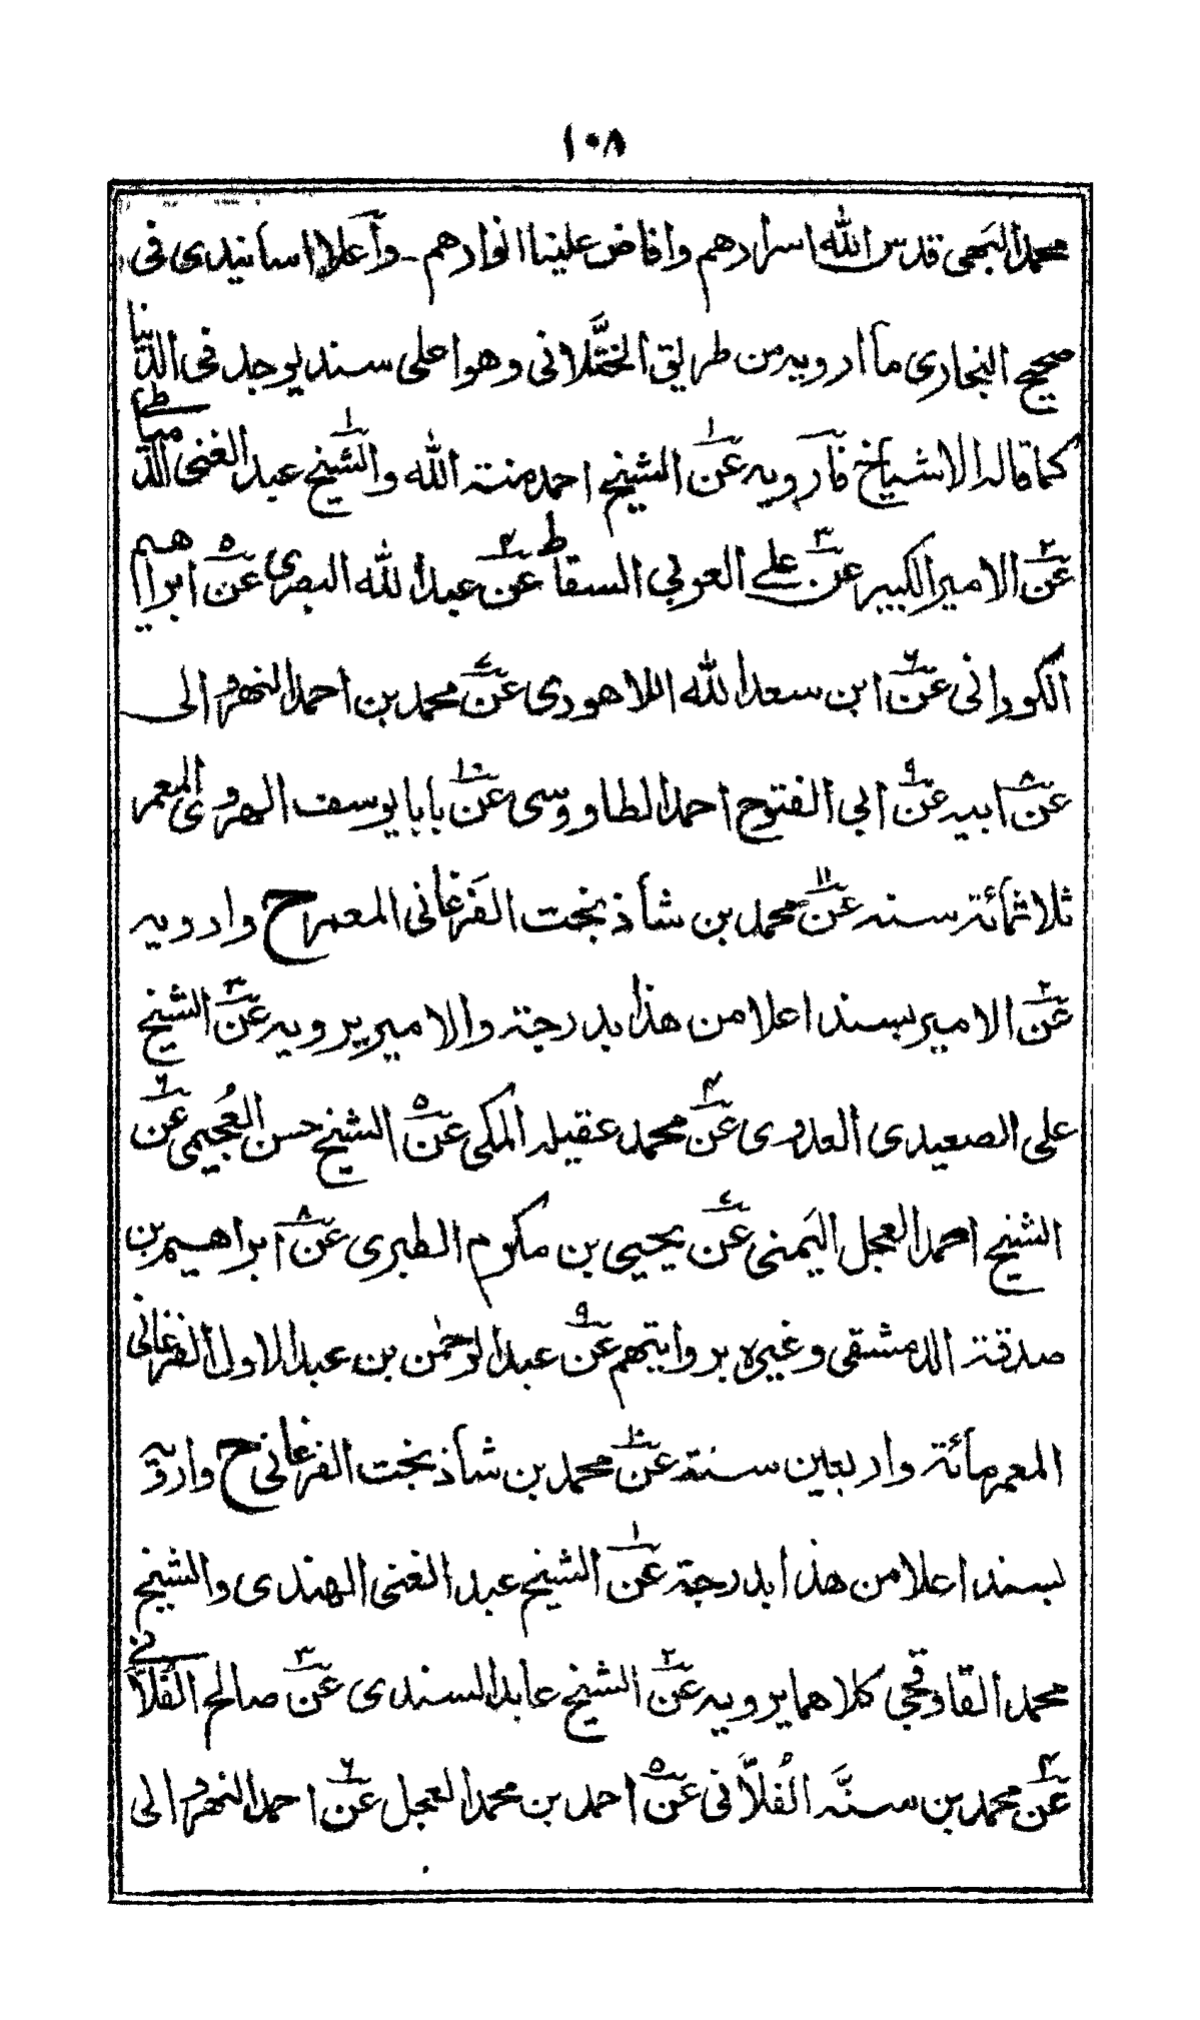 ١٠٨
محمد البَهى قدس الله اسرارهم وافاض علينا انوارهم۔ وأعلا اسانيدى فى
صحيح البخارى ما ارويه من طريق الختَّلانى وهو اعلى سند يوجد فى الدنيا
كما قاله الاشياخ فآرويه عن١ الشيخ احمد منة الله والشيخ١ عبد الغنى الدمياطى
عن٢ الامير الكبير عن٣ على العربى السقاط عن٤ عبد الله البصرى عن٥ ابراهيم
الكورانى عن٦ ابن سعد الله اللاهورى عن٧ محمد بن احمد النهروالى
عن٨ ابيه عن٩ ابى الفتوح احمد الطاووسى عن١٠ بابا يوسف الهروى المعمر
ثلاثمائة سنه عن١١ محمد بن شاذ بخت الفَرغانى المعمر ح وارويه
عن٢ الامير بسند اعلا من هذا بدرجة والامير يرويه عن٣ الشيخ
على الصعيدى العدوى عن٤ محمد عقيله المكى عن٥ الشيخ حسن العُجيمى عن٦
الشيخ احمد العجل اليَمنى عن٧ يحيى بن مكرم الطبرى عن٨ ابراهيم بن
صدقة الدمشقى وغيره بروايتهم عن٩ عبد الرحمٰن بن عبد الاول الفرغانى
المعمر مائة واربعين سنة عن١٠ محمد بن شاذ بخت الفرغانى ح وارويه
بسند اعلا من هذا بدرجة عن١ الشيخ عبد الغنى الهندى والشيخ
محمد القاوقجى كلاهما يرويه عن٢ الشيخ عابد السندى عن٣ صالح الفُلَّانى
عن٤ محمد بن سنَّه الفُلاَّنى عن٥ احمد بن محمد العجل عن٦ احمد النهروالى